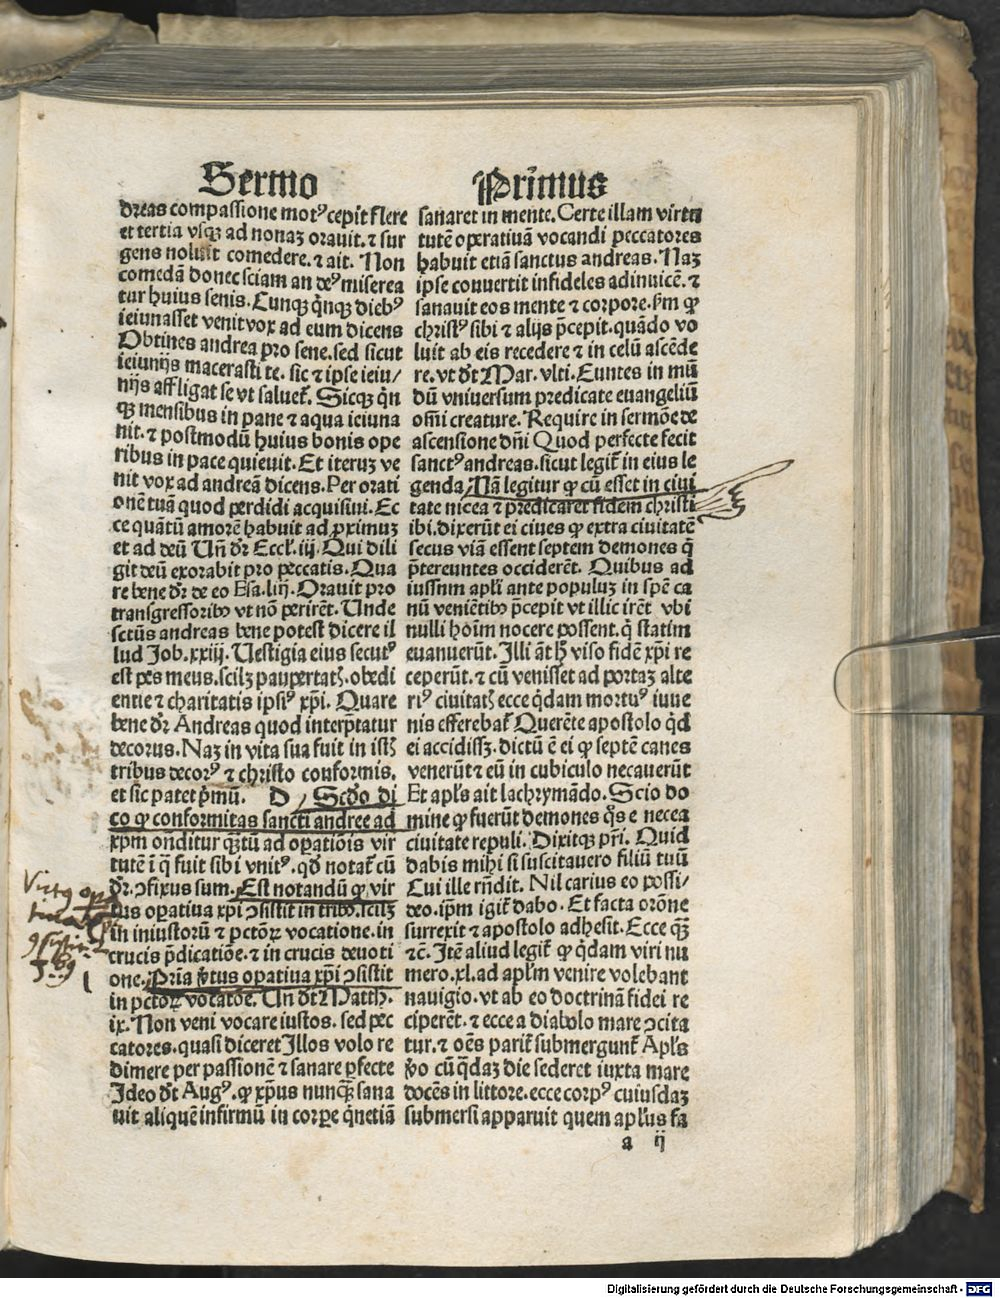 Sermo
dreas compassione motꝰ cepit flere
et tertia vsqꝫ ad nonaꝫ orauit. ⁊ sur
gens noluit comedere. ⁊ ait. Non
comedā donec sciam an deꝰ miserea
tur huius senis. Cunqꝫ q̄nqꝫ diebꝰ
ieiunasset venit vox ad eum dicens
Obtines andrea pro sene. sed sicut
ieiunijs macerasti te. sic ⁊ ipse ieiu/
nijs affligat se vt saluet̄. Sicqꝫ q̄n
qꝫ mensibus in pane ⁊ aqua ieiuna
nit. ⁊ postmodū huius bonis ope
ribus in pace quieuit. Et iteruꝫ ve
nit vox ad andreā dicens. Per orati
onē tuā quod perdidi acquisiui. Ec
ce quātū amorē habuit ad proximuꝫ
et ad deū Un̄ dr̄ Eccl̄. iij. Qui dili
git deū exorabit pro peccatis. Qua
re bene dr̄ de eo Esa. liij. Orauit pro
transgressoribꝰ vt nō perirēt. Unde
sctūs andreas bene potest dicere il
lud Job. xxiij. Uestigia eius secutꝰ
est pes meus. scilꝫ paupertat̄. obedi
entie ⁊ charitatis ipsiꝰ xp̄i. Quare
bene dr̄ Andreas quod interp̄tatur
decorus. Naꝫ in vita sua fuit in ist̄
tribus decorꝰ ⁊ christo conformis.
et sic patet p̄mū. D Scd̄o di
co ꝙ conformitas sancti andree ad
xp̄m ondītur q̄ꝫtū ad oꝑatiōis vir
tutē ī q̄ fuit sibi vnitꝰ. qd̄ notat̄ cū
dr̄. ↄfixus sum. Est notandū ꝙ vir
tus oꝑatiua xp̄i ↄsistit in tribꝰ. scilꝫ
in iniustorū ⁊ pctōꝝ vocatione. in
crucis p̄dicatiōe. ⁊ in crucis deuoti
one. Prīa v̄tus oꝑatiua xp̄i ↄsistit
in pctōꝝ vocatōe. Un̄ dt̄ Matth.
ix. Non veni vocare iustos. sed pec
catores. quasi diceret Illos volo re
dimere per passionē ⁊ sanare ꝑfecte
Ideo dt̄ Augꝰ. ꝙ xp̄us nunq̄ꝫ sana
uit aliquē infirmū in corꝑe q̄n etiā
Primus
sanaret in mente. Certe illam virtu
tutē operatiuā vocandi peccatores
habuit etiā sanctus andreas. Naꝫ
ipse conuertit infideles adinuicē. ⁊
sanauit eos mente ⁊ corpore. ꝓm ꝙ
christꝰ sibi ⁊ alijs p̄cepit. quādo vo
luit ab eis recedere ⁊ in celū ascēde
re. vt dt̄ Mar. vlti. Euntes in mū
dū vniuersum predicate euangeliū
om̄i creature. Require in sermōe de
ascensione dn̄i Quod perfecte fecit
sanctꝰ andreas. sicut legit̄ in eius le
genda Nā legitur ꝙ cū esset in ciui
tate nicea ⁊ predicaret fidem christi
ibi. dixerūt ei ciues ꝙ extra ciuitatē
secus viā essent septem demones q̄
p̄tereuntes occiderēt. Quibus ad
iussum apl̄i ante populuꝫ in spē ca
nū veniētibꝰ p̄cepit vt illic irēt vbi
nulli hoīm nocere possent. q̄ statim
euanuerūt. Illi āt h̄ viso fidē xp̄i re
ceperūt. ⁊ cū venisset ad portaꝫ alte
riꝰ ciuitat̄ ecce q̄dam mortuꝰ iuue
nis efferebat̄ Querēte apostolo q̄d
ei accidissꝫ. dictū ē ei ꝙ septē canes
venerūt ⁊ eū in cubiculo necauerūt
Et apl̄s ait lachrymādo. Scio do
mine ꝙ fuerūt demones q̄s e necea
ciuitate repuli. Dixitqꝫ pr̄i. Quid
dabis mihi si suscitauero filiū tuū
Cui ille rn̄dit. Nil carius eo possi/
deo. ip̄m igit̄ dabo. Et facta orōne
surrexit ⁊ apostolo adhesit. Ecce q̄ꝫ
⁊c. Itē aliud legit̄ ꝙ q̄dam viri nu
mero. xl. ad apl̄m venire volebant
nauigio. vt ab eo doctrinā fidei re
ciperēt. ⁊ ecce a diabolo mare ↄcita
tur. ⁊ oēs parit̄ submergunt̄ Apl̄s
v̄o cū q̄daꝫ die sederet iuxta mare
docēs in littore. ecce corpꝰ cuiusdaꝫ
submersi apparuit quem apl̄us fa
a ij
Digitalisierung gefördert durch die Deutsche Forschungsgemeinschaft - DFG